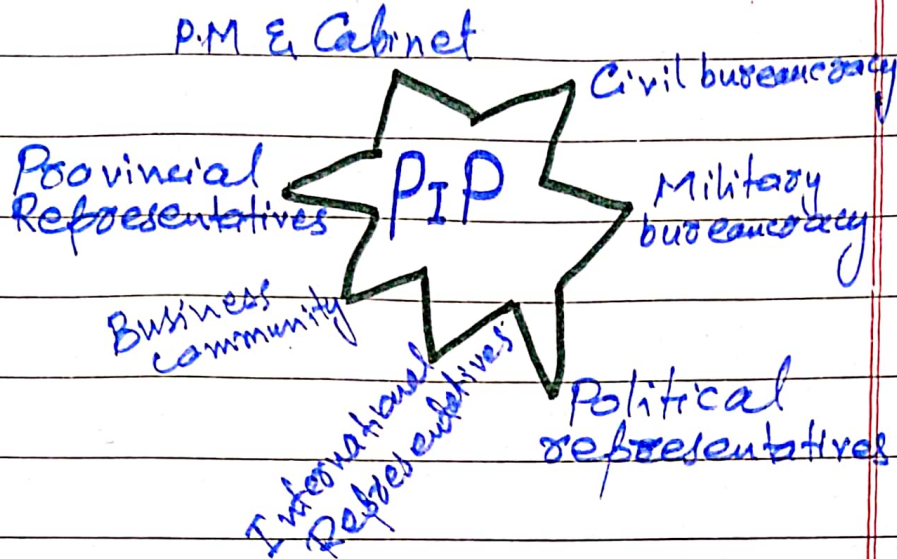 P.M & Cabinet
Civil bureaucracy
Provincial
Representatives
PIP
Military
bureaucracy
Business
community
International
Representatives
Political
representatives